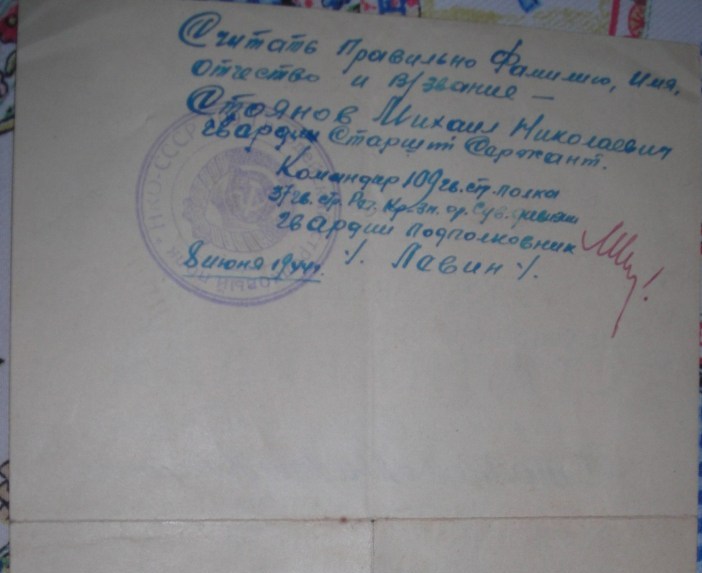 Считать Правильно Фамилию, Имя,
Отчество и в/звание —
Стоянов Михаил Николаевич
гвардии Старший Сержант.
Командир 109 гв. стр. полка
37 гв. стр. Реч. Кр. Зн. ор. Сув. дивизии
гвардии подполковник
8 июня 1944г. ·/. Лавин ·/.
НКО-СССР